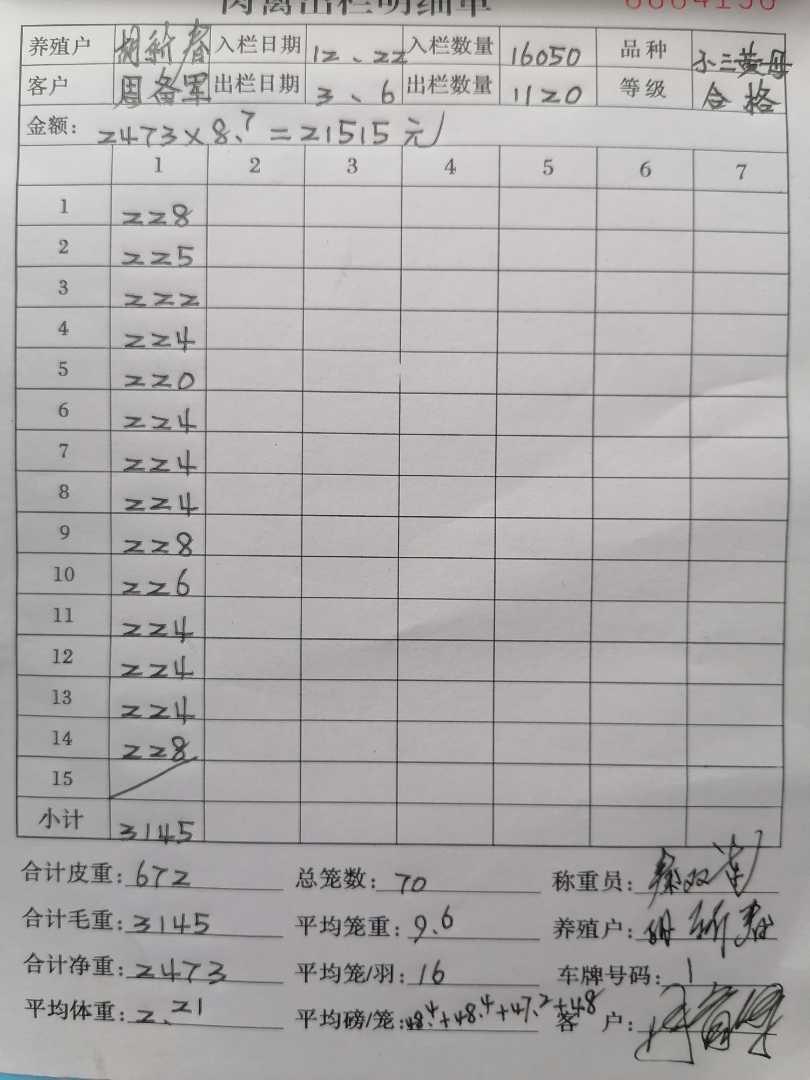 肉禽出栏明细单 0004150
养殖户 胡新春 入栏日期 12、22 入栏数量 16050 品种 小三黄母
客户 周备军 出栏日期 3、6 出栏数量 1120 等级 合格
金额: 2473×8.7=21515元
1 2 3 4 5 6 7
1 228
2 225
3 222
4 224
5 220
6 224
7 224
8 224
9 228
10 226
11 224
12 224
13 224
14 228
15
小计 3145
合计皮重: 672 总笼数: 70 称重员:
合计毛重: 3145 平均笼重: 9.6 养殖户: 胡新春
合计净重: 2473 平均笼/羽: 16 车牌号码: 1
平均体重: 2.21 平均磅/笼: 48.4+48.4+47.2+48 客 户: